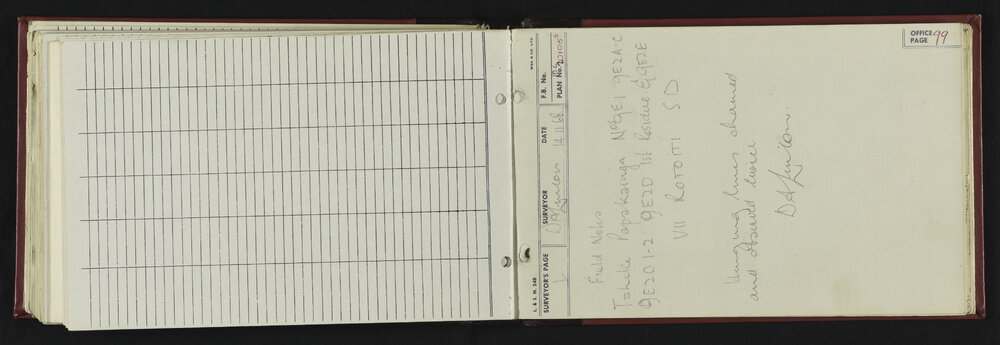 OFFICE PAGE 99
L. & S. N. 248
SURVEYOR'S PAGE 1
SURVEYOR
DATE 14.11.68
F.B. No.
PLAN No.
Field Notes
Taheke Papakainga Nos 9E1 9E2A-C
9E2D1-2 9E2D 1st Residue & 9E2E
VII ROTOITI SD
Hanging lines chained
and observed twice